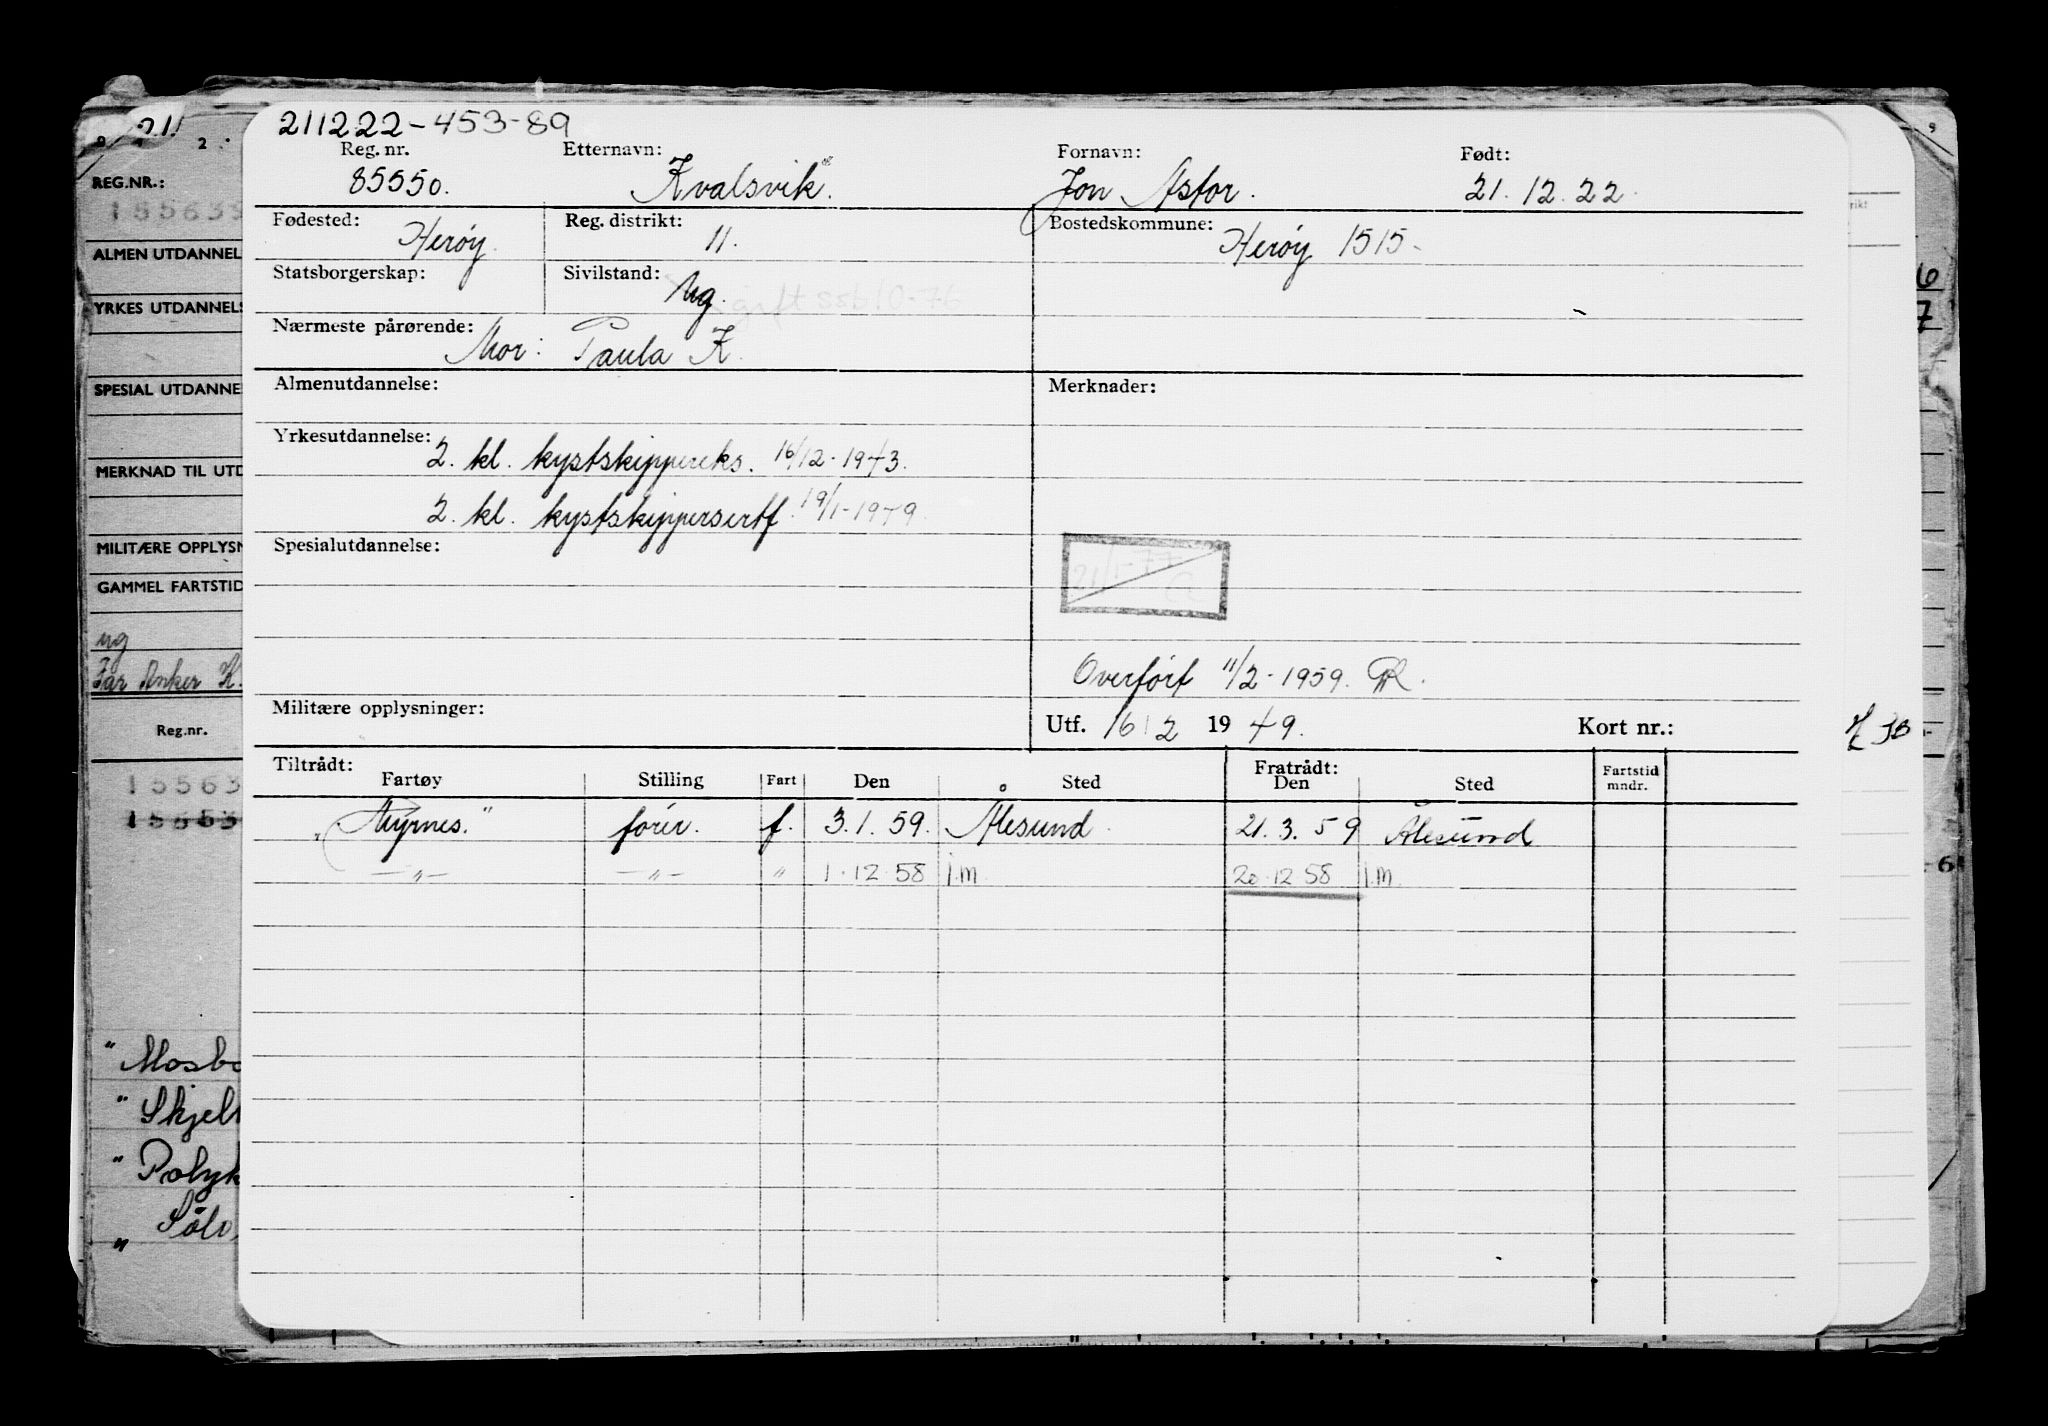 211222-453-89
Reg. nr. Etternavn: Fornavn: Født:
85550. Kvalsvik. Jon Astor. 21.12.22.
Fødested: Reg. distrikt: Bostedskommune:
Herøy. 11. Herøy 1515-
Statsborgerskap: Sivilstand:
Ug. gift ssb 10-76
Nærmeste pårørende:
Mor: Paula K.
Almenutdannelse: Merknader:
Yrkesutdannelse:
2. kl. kystskippereks. 16/12-1943.
2. kl. kystskippersertf. 19/1-1949.
Spesialutdannelse:
21/1-77
Overført 11/2-1959.
Militære opplysninger: Utf. 16/2 1949. Kort nr.:
Tiltrådt: Fratrådt:
Fartøy Stilling Fart Den Sted Den Sted Fartstid mndr.
"Myrnes." fører. f. 3.1.59. Ålesund. 21.3.59 Ålesund
-"- -"- " 1.12.58 i.m. 20.12.58 i.m.
REG.NR.:
ALMEN UTDANNEL
YRKES UTDANNELS
SPESIAL UTDANNE
MERKNAD TIL UTD
MILITÆRE OPPLYSN
GAMMEL FARTSTID
ug
Far Anker K.
Reg.nr.
15563
15563
"Mosbo
"Skjelt
"Polyk
"Sølv